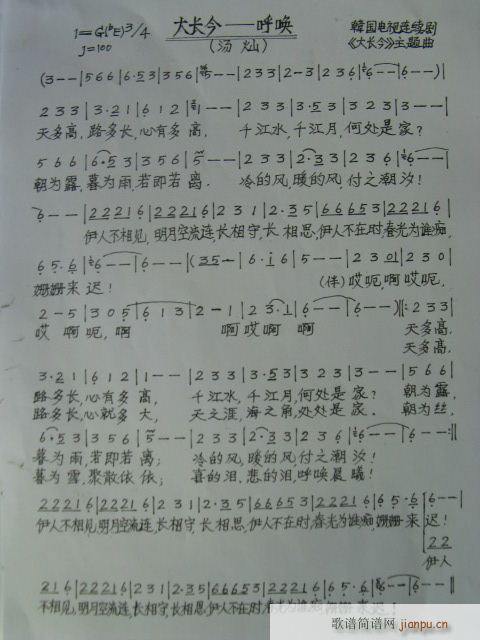 大长今——呼唤
1=G(♭E)3/4
韩国电视连续剧
J=100
(汤灿)
《大长今》主题曲
(3--|566|6·53|356|5--|233|2-3|236|6--|6--)|
233|3·21|612|1--|233|233|3·53|323|3--|
天多高,路多长,心有多高, 千江水,千江月,何处是家?
566|6·53|356|5--|233|2·33|236|6--|
朝为露,暮为雨,若即若离. 冷的风,暖的风付之潮汐!
6--|222216|222216|231|2·35|666653|222216|
伊人不相见,明月空流连,长相守,长相思,伊人不在时,春光为谁痴,
65·6|6--|6--|(35--|6·i6|5--|--|2301|230|
姗姗来迟! (伴)哎呃啊哎呃,
2-5|305|613|2-1|23·1|6--|6--)||:233|
哎啊呃,啊 啊哎啊啊 天多高,
天多高,
3·21|612|1--|233|233|3·53|323|3--|566|
路多长,心有多高, 千江水,千江月,何处是家? 朝为露,
路多长,心就多大, 天之涯,海之角,处处是家. 朝为丝,
6·53|356|5--|233|2·33|236|6--|6--:||
暮为雨,若即若离; 冷的风,暖的风付之潮汐!
暮为雪,聚散依依; 喜的泪,悲的泪,呼唤晨曦!
222216|222216|231|2·35|666653|222216|65·6|6--|
伊人不相见,明月空流连,长相守,长相思,伊人不在时,春光为谁痴,姗姗来迟!
22|
伊人
216|222216|231|2·35|666653|222216|65·6|6--|6--||
不相见,明月空流连,长相守,长相思,伊人不在时,春光为谁痴,姗姗来迟!
歌谱简谱网 jianpu.cn